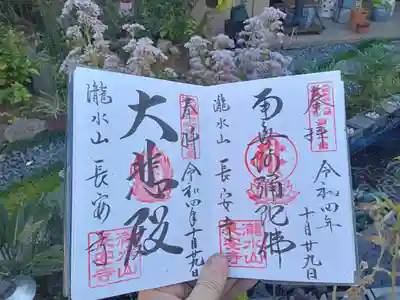 奉拝
令和四年
十月廿九日
南無阿彌陀佛
瀧水山 長安寺
瀧水山
長安寺
奉拝
令和四年十月廿九日
大悲殿
瀧水山 長安寺
瀧水山
長安寺